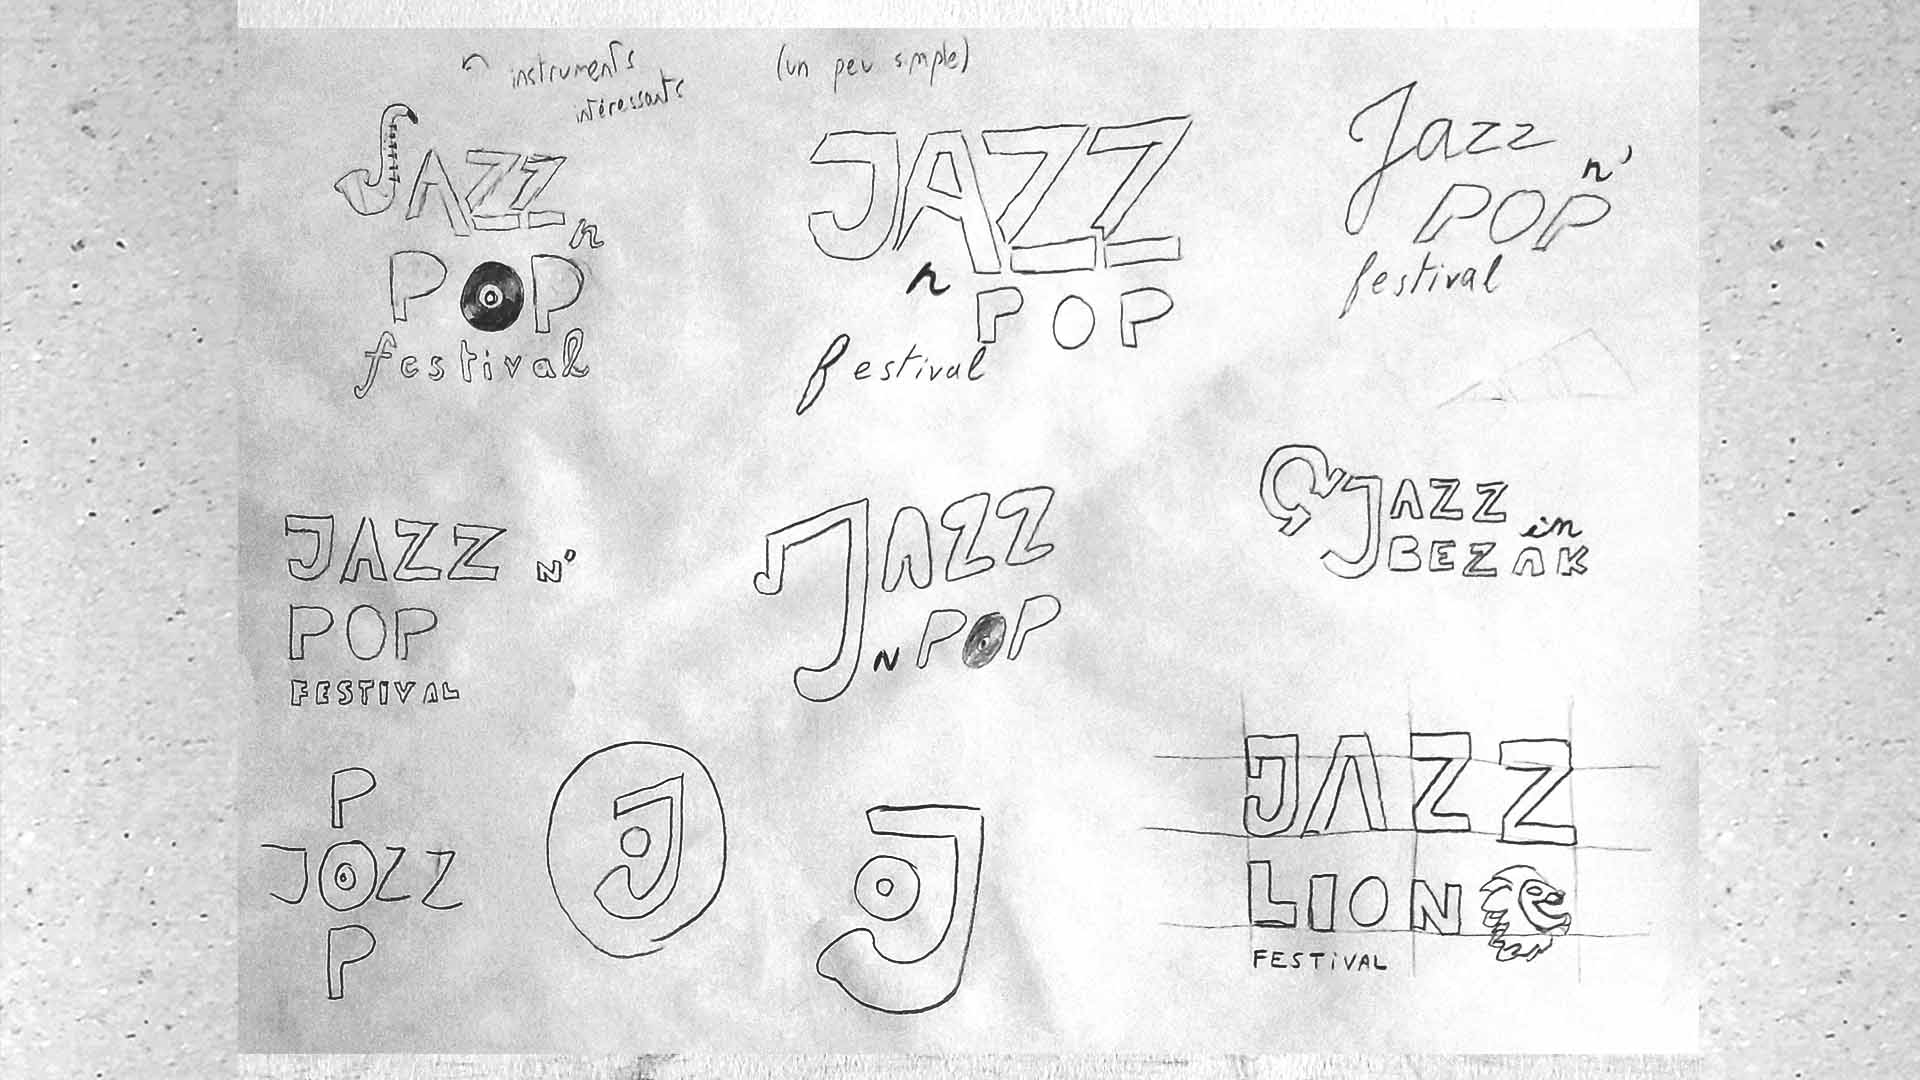 instruments
intéressants
(un peu simple)
JAZZ
n
POP
festival
JAZZ
n POP
festival
Jazz
n'
POP
festival
JAZZ N'
POP
FESTIVAL
JAZZ
N POP
JAZZ in
BEZAK
P
JOZZ
P
J
J
JAZZ
LION
FESTIVAL